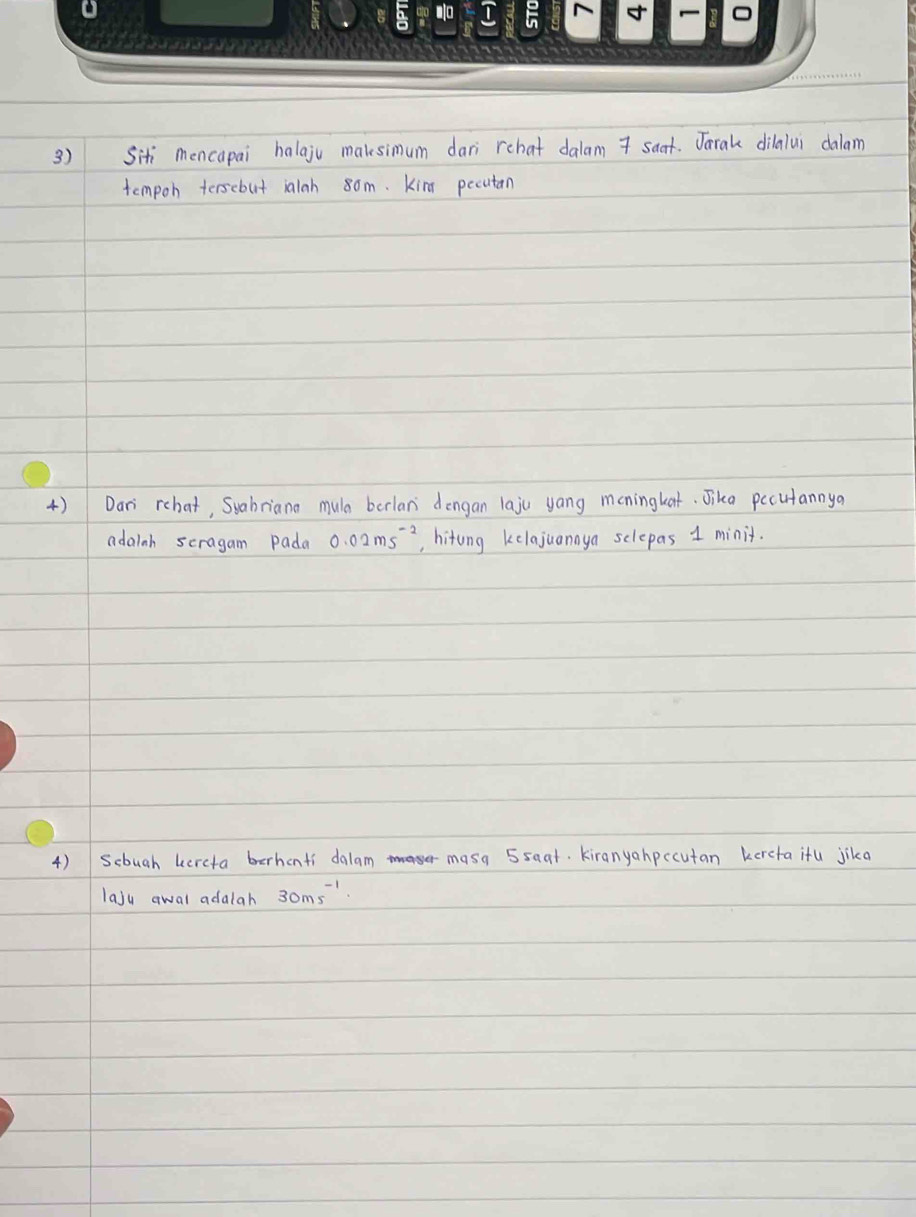 SHIFT OPTN (-) RECALL STO CONST 7 4 1 Rnd 0
3) Siti mencapai halaju maksimum dari rehat dalam 7 saat. Jarak dilalui dalam
tempoh tersebut ialah 80m. Kira pecutan
4) Dari rehat, Syahriana mula berlari dengan laju yang meningkat. Jika pecutannya
adalah seragam pada 0.02ms⁻², hitung kelajuannya selepas 1 minit.
4) Sebuah kereta berhenti dalam masa 5 saat. Kiranyahpecutan kereta itu jika
laju awal adalah 30ms⁻¹.